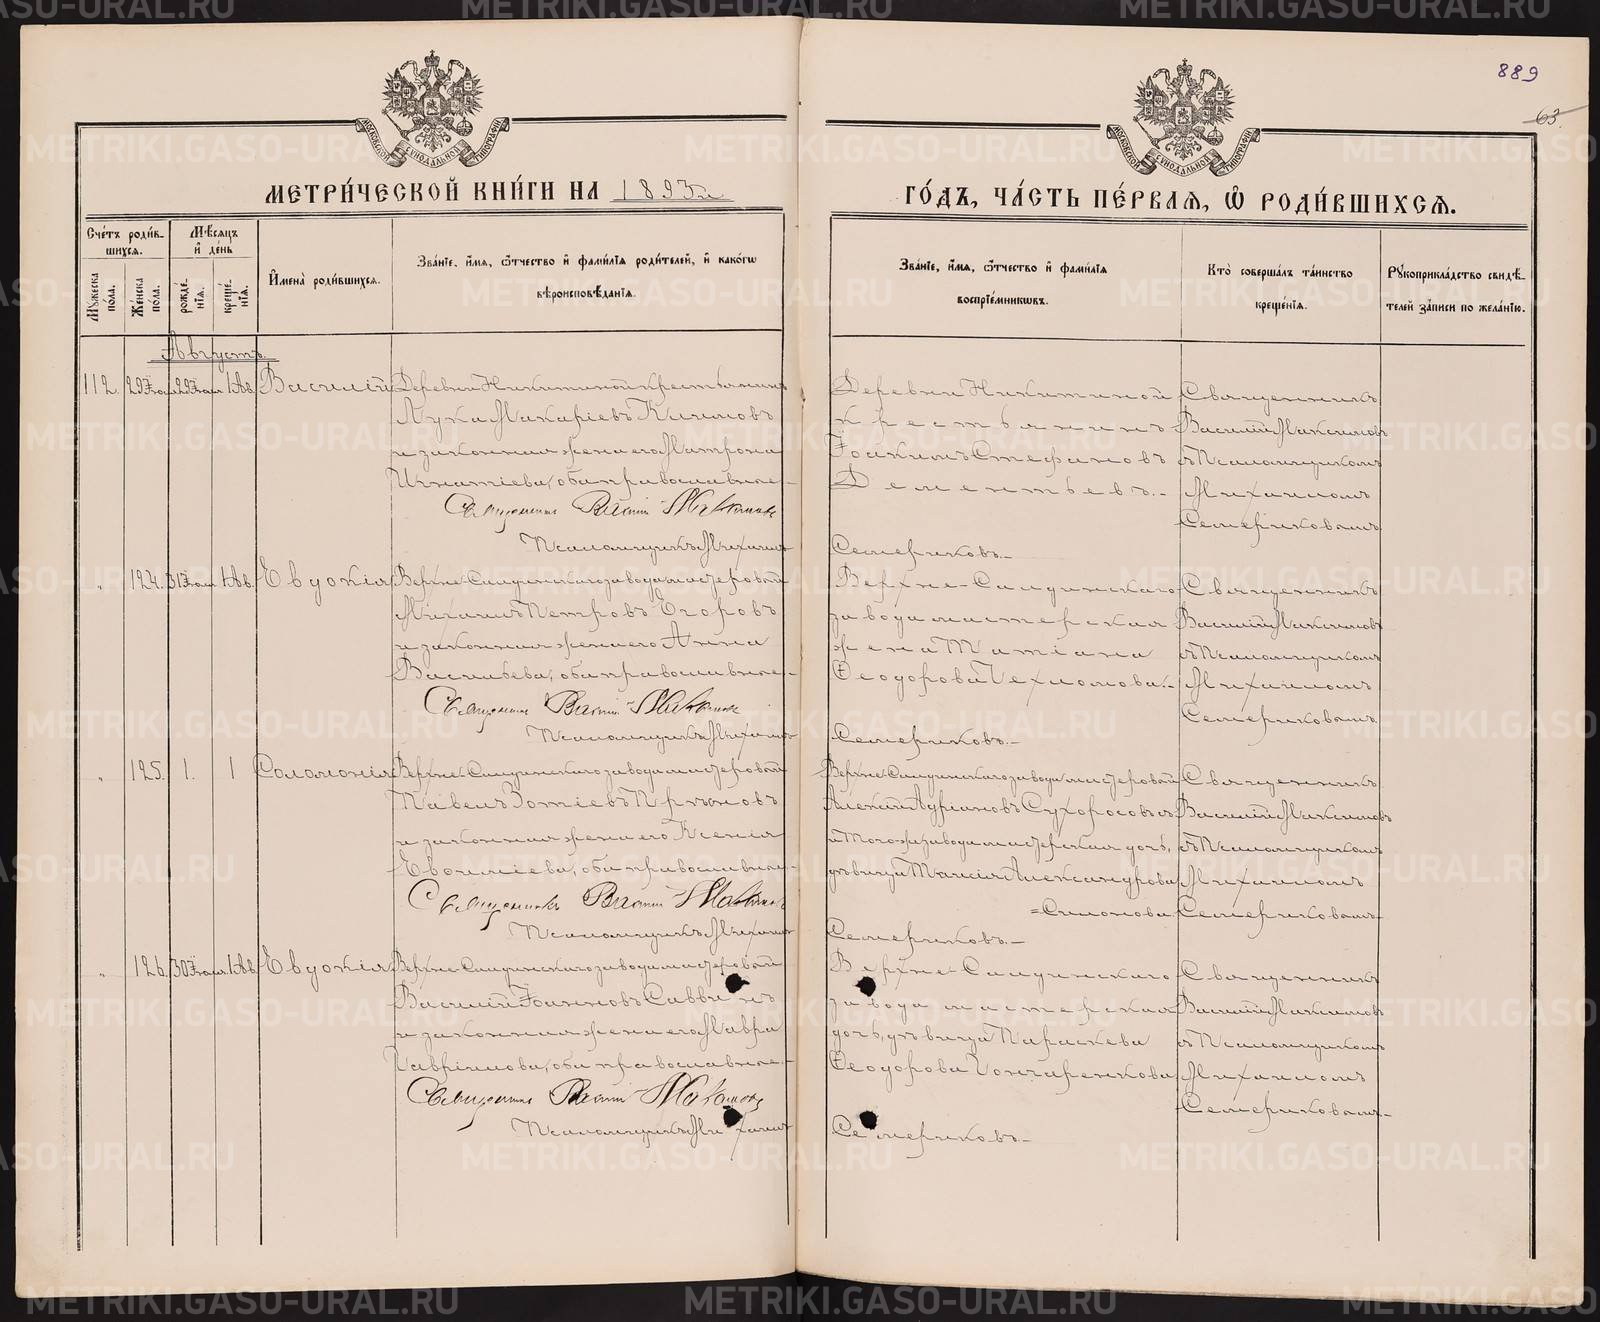 889
63.
МОСКОВСКОЙ СѴНОДАЛЬНОЙ ТИПОГРАФІИ
МОСКОВСКОЙ СѴНОДАЛЬНОЙ ТИПОГРАФІИ
МЕТРИ́ЧЕСКОЙ КНИ́ГИ НА 1893й
ГО́ДЪ, ЧА́СТЬ ПЕ́РВАЯ, Ѽ РОДИ́ВШИХСЯ.
Сче́тъ роди́в-
шихся.
Мꙋ́жеска по́ла.
Же́нска по́ла.
Мѣ́сяцъ и҆ де́нь
рожде́-нїя.
креще́-нїя.
И҆мена̀ роди́вшихся.
Зва́нїе, и҆́мя, ѻ҆́тчество и҆ фами́лїя роди́телей, и҆ како́гѡ
вѣроисповѣ́данїя.
Зва́нїе, и҆́мя, ѻ҆́тчество и҆ фами́лїя
воспрїе́мникѡвъ.
Кто̀ соверша́лъ та́инство
креще́нїя.
Рꙋкоприкла́дство свидѣ́-
телей за́писи по жела́нїю.
Августъ.
112. 29 Іюл. 1 Ав. Василій
Деревни Никитиной крестьянинъ
Лука Макаріевъ Климовъ
и законная жена его Матрона
Игнатіева, оба православные.-
Священникъ Василій Максимовъ
Псаломщикъ Михаилъ
Деревни Никитиной
крестьянинъ
Іоакимъ Стефановъ
Дементьевъ.-
Семериковъ.-
Священникъ
Василій Максимовъ
съ Псаломщикомъ
Михаиломъ
Семериковымъ
" 124. 31 Іюл. 1 Ав. Евдокія
Верхне-Салдинскаго завода мастеровой
Михаилъ Петровъ Егоровъ
и законная жена его Анна
Васильева, оба православные.-
Священникъ Василій Максимовъ
Псаломщикъ Михаилъ
Верхне-Салдинскаго
завода мастерская
жена Татіана
Ѳеодорова
Семериковъ.-
Священникъ
Василій Максимовъ
съ Псаломщикомъ
Михаиломъ
Семериковымъ
" 125. 1. 1 Соломонія
Верхне-Салдинскаго завода мастеровой
Павелъ Зотіевъ
и законная жена его Ксенія
Евѳиміева, оба православные.-
Священникъ Василій Максимовъ
Псаломщикъ Михаилъ
Верхне-Салдинскаго завода мастеровой
Алексій Адріановъ Сухоросовъ
и того-же завода мастерская дочь,
дѣвица Таисія Александрова
=Симонова
Семериковъ.-
Священникъ
Василій Максимовъ
съ Псаломщикомъ
Михаиломъ
Семериковымъ
" 126. 30 Іюля 1 Ав. Евдокія
Верхне-Салдинскаго завода мастеровой
Василій Іоанновъ Саввинъ
и законная жена его Мавра
Гавріилова, оба православные.-
Священникъ Василій Максимовъ
Псаломщикъ Михаилъ
Верхне-Салдинскаго
завода мастерская
дочь, дѣвица Параскева
Ѳеодорова Гончаренкова
Семериковъ.-
Священникъ
Василій Максимовъ
съ Псаломщикомъ
Михаиломъ
Семериковымъ.-
METRIKI.GASO-URAL.RU